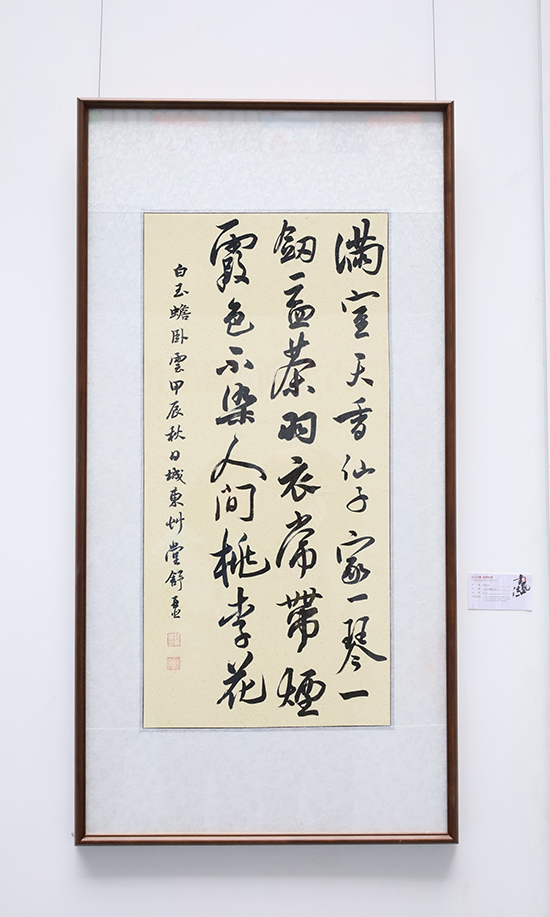 满室天香仙子家一琴一
釼一盃茶羽衣常帶煙
霞色不染人间桃李花
白玉蟾卧雲甲辰秋日城東艸堂舒